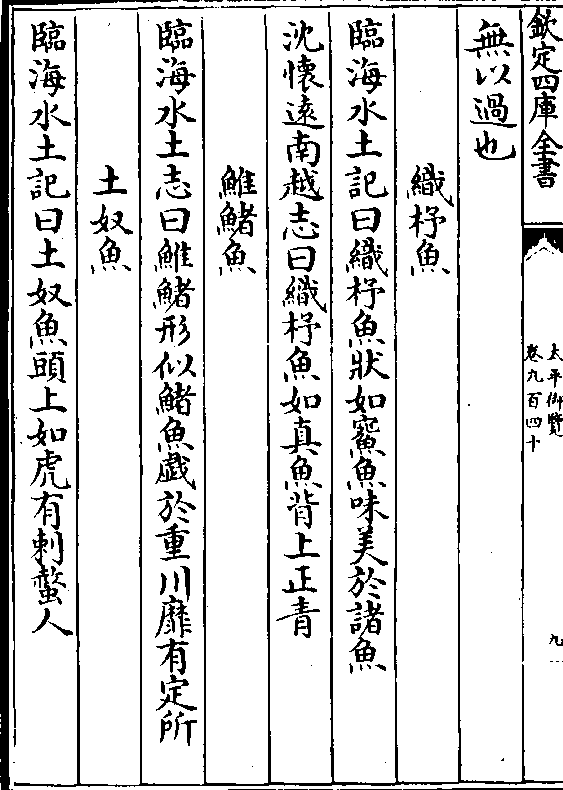 欽定四庫全書
太平御覽
卷九百四十
九
無以過也
織杼魚
臨海水土記曰織杼魚狀如鰵魚味美於諸魚
沈懷遠南越志曰織杼魚如真魚背上正青
鯡鯺魚
臨海水土志曰鯡鯺形似鯺魚戲於重川靡有定所
土奴魚
臨海水土記曰土奴魚頭上如虎有刺螫人